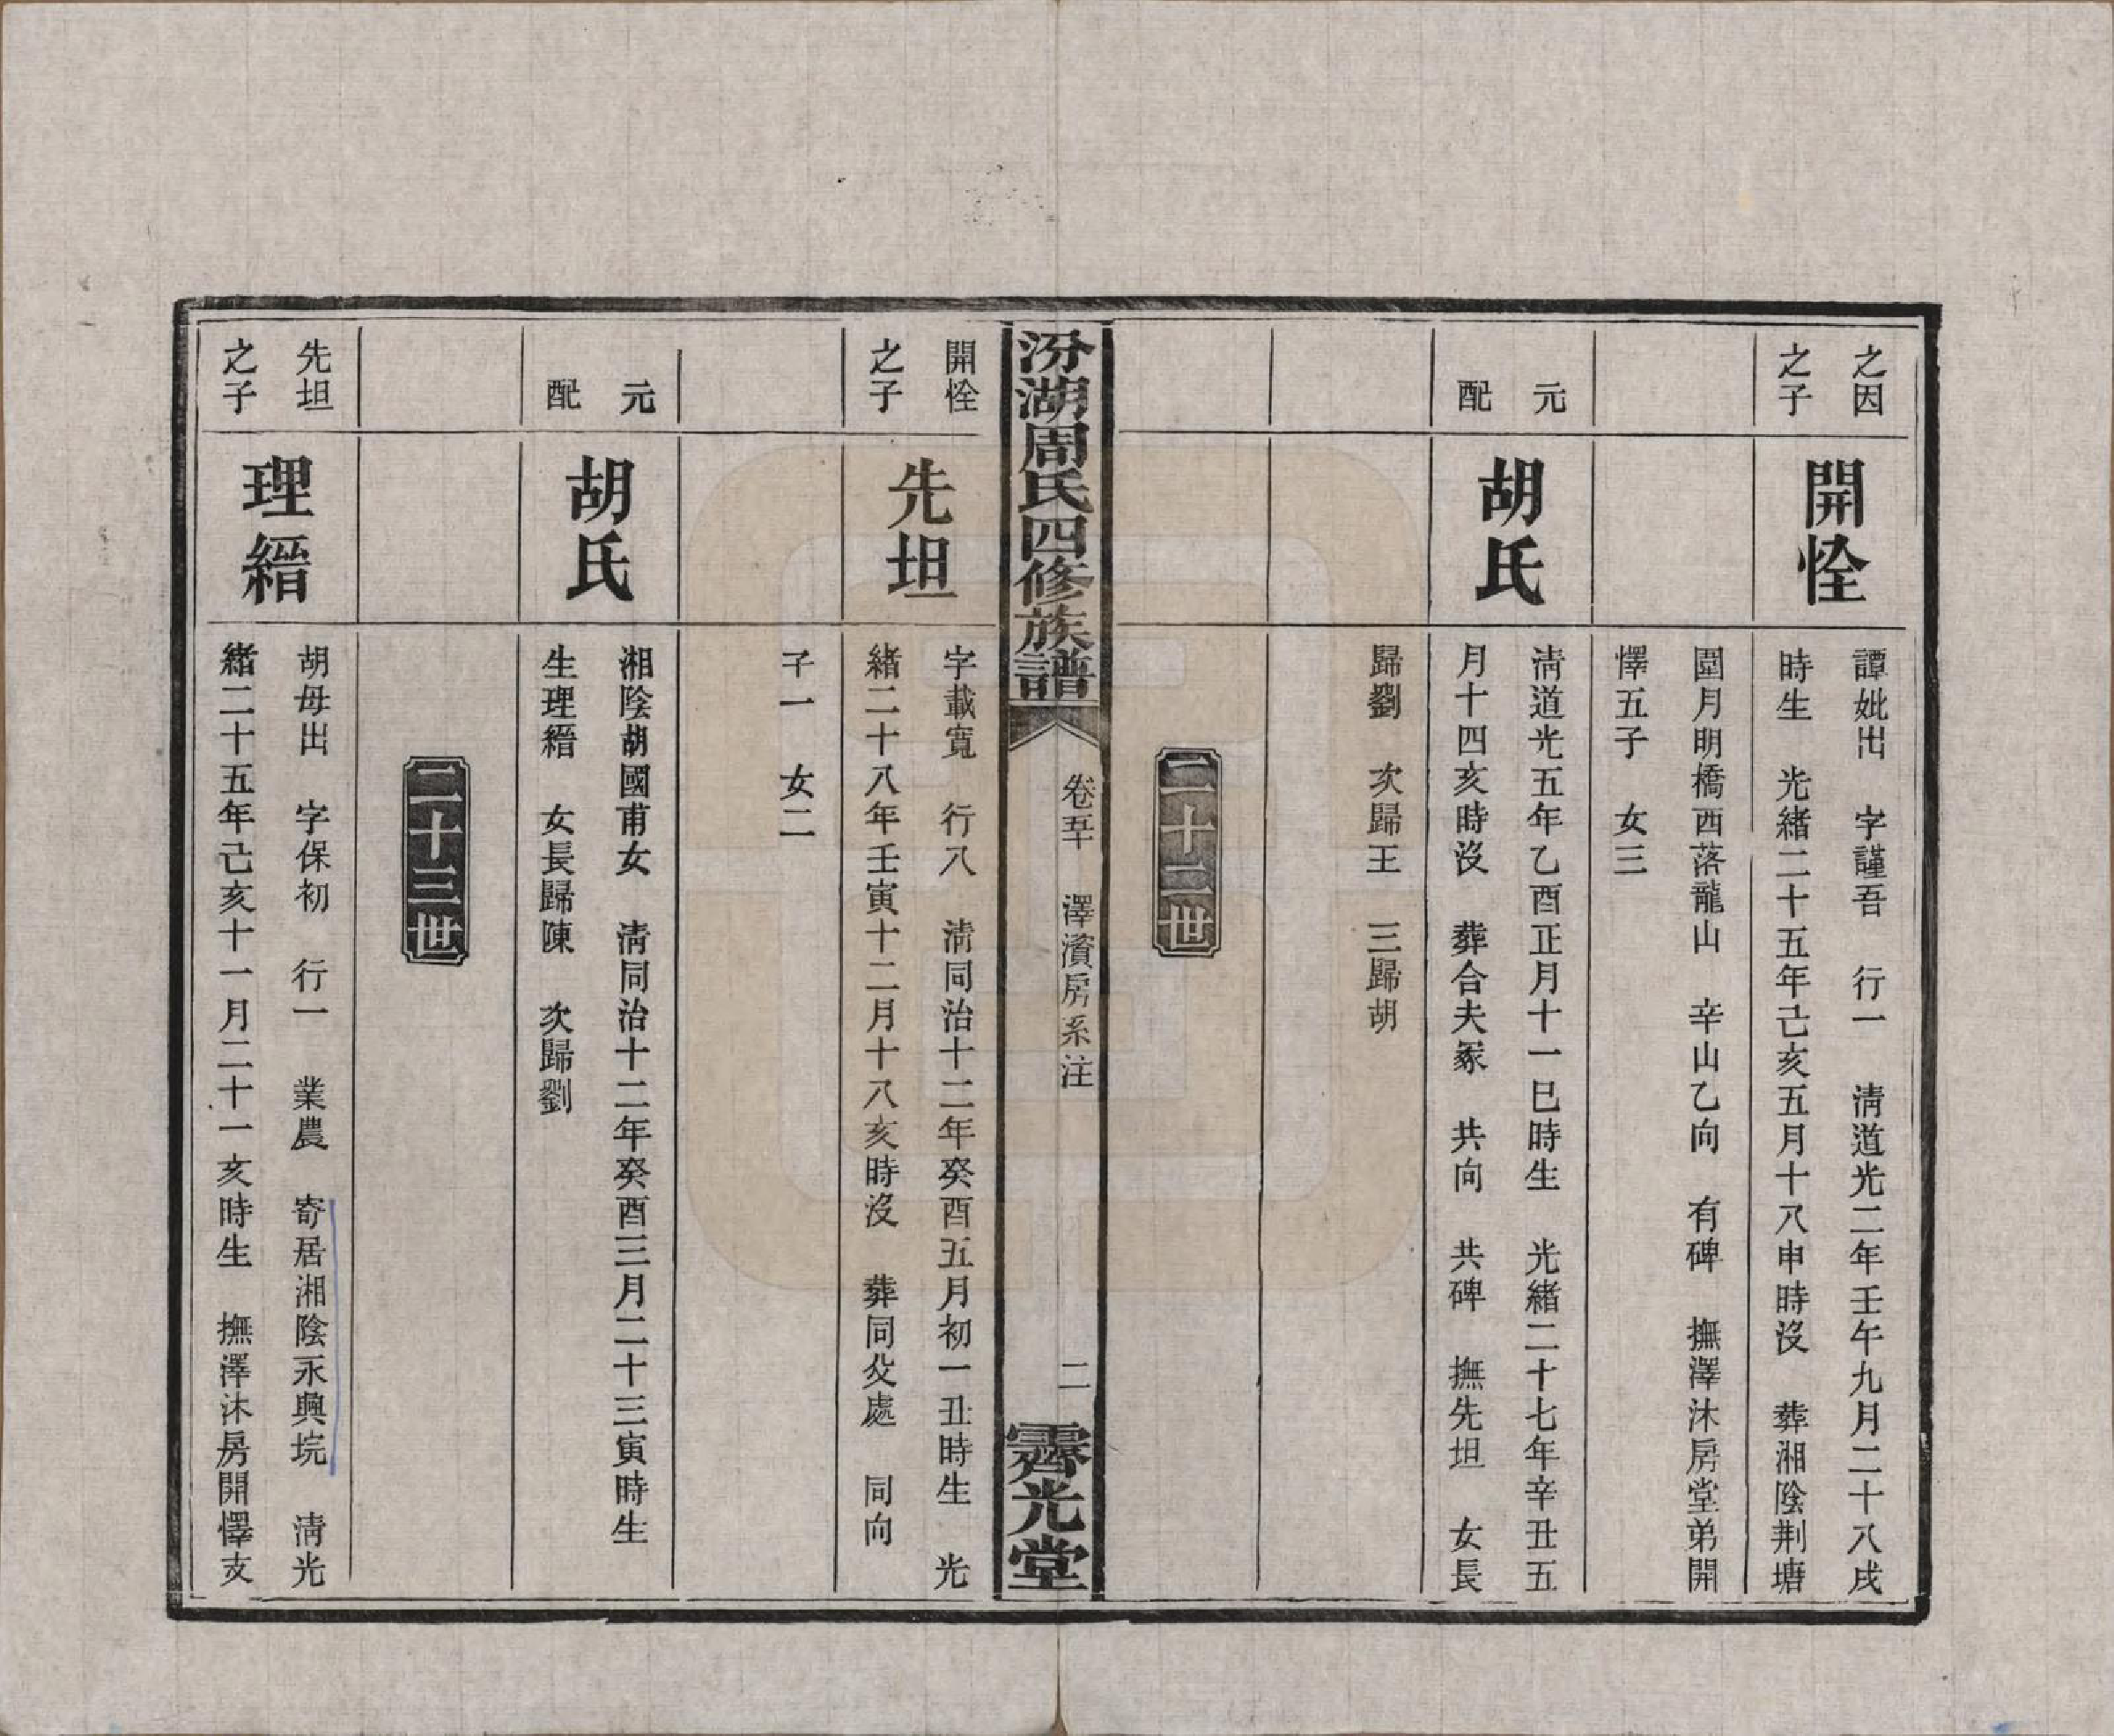 之因
之子
開恮
譚妣出　字謹吾　行一　淸道光二年壬午九月二十八戌
時生　光緖二十五年己亥五月十八申時沒　葬湘陰荆塘
圍月明橋西落龍山　辛山乙向　有碑　撫澤沐房堂弟開
懌五子　女三
元
配
胡氏
淸道光五年乙酉正月十一巳時生　光緖二十七年辛丑五
月十四亥時沒　葬合夫冢　共向　共碑　撫先坦　女長
歸劉　次歸王　三歸胡
二十二世
汾湖周氏四修族譜
卷五十　澤濱房系注
二
霽光堂
開恮
之子
先坦
字載寬　行八　淸同治十二年癸酉五月初一丑時生　光
緖二十八年壬寅十二月十八亥時沒　葬同父處　同向
子一　女二
元
配
胡氏
湘陰胡國甫女　淸同治十二年癸酉三月二十三寅時生
生理縉　女長歸陳　次歸劉
二十三世
先坦
之子
理縉
胡母出　字保初　行一　業農　寄居湘陰永興垸　淸光
緖二十五年己亥十一月二十一亥時生　撫澤沐房開懌支